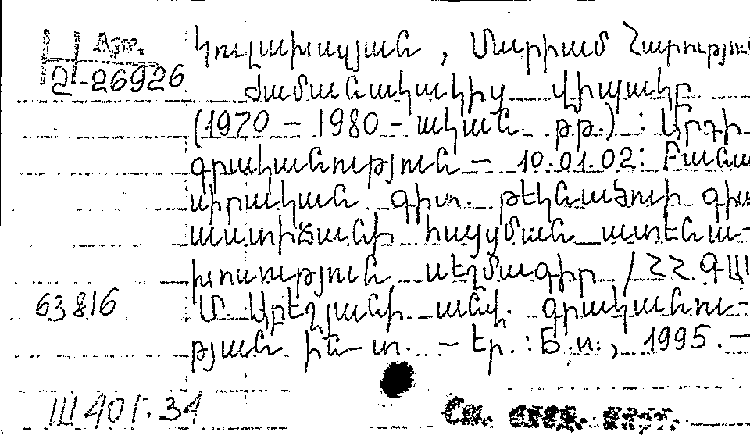 Ա 2-26926
Կուլախսզյան, Մարիամ Հարությու
Ժամանակակից վիպակը
(1970 – 1980-ական թթ.) : Արդի
գրականություն – 10.01.02: Բանա
սիրական գիտ. թեկնածուի գիտ
աստիճանի հայցման ատենա-
խոսություն սեղմագիր /ՀՀ ԳԱԱ
63816
Մ. Աբեղյանի անվ. գրականու-
թյան ին-տ. – Եր. : Б.и., 1995. –
Ш 401.34
См.